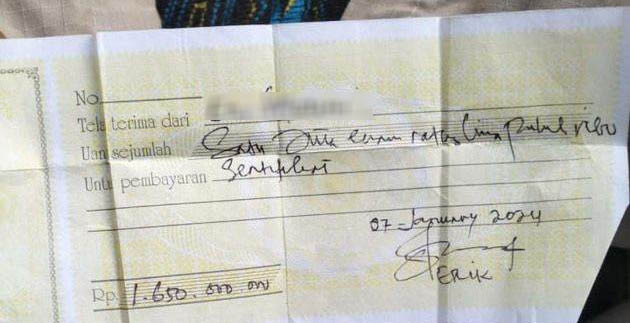 No.
Tela terima dari
Uan sejumlah Satu Juta enam ratus lima puluh ribu
Untu pembayaran Sertifikat
07 January 2024
ERIK
Rp. 1.650.000.00